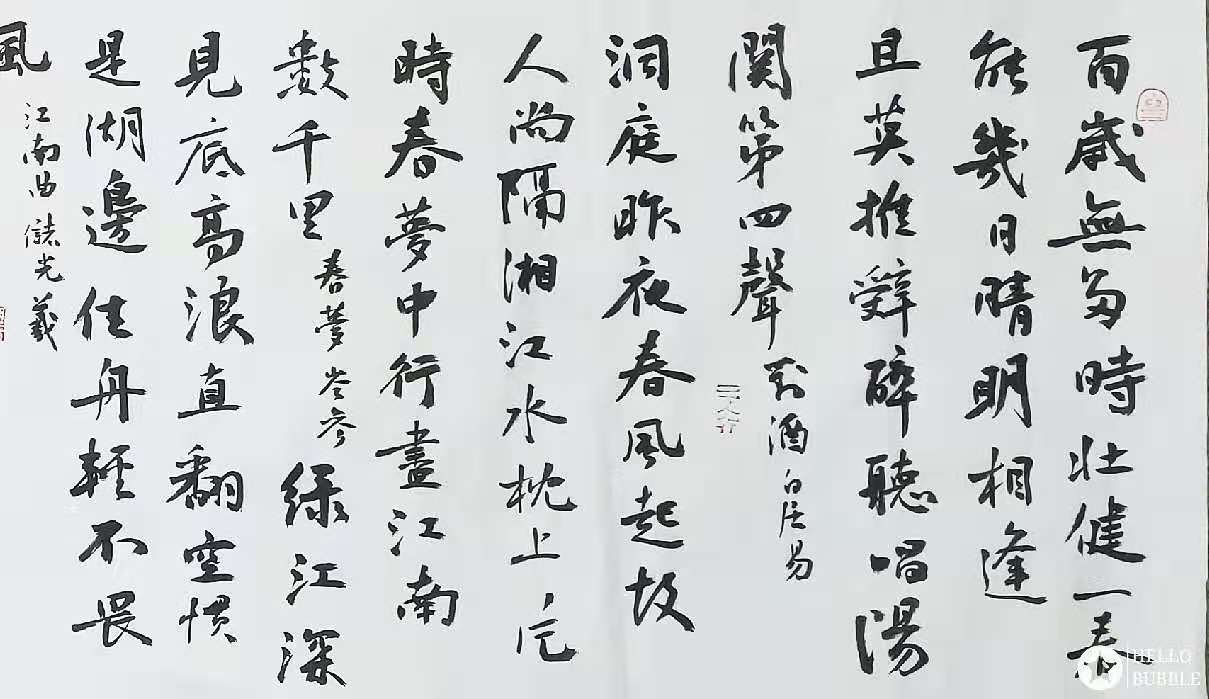 百歲無多時壯健一春
能幾日晴明相逢
且莫推辭醉聽唱陽
關第四聲 對酒 白居易
洞庭昨夜春風起故
人尚隔湘江水枕上片
時春夢中行盡江南
數千里 春夢 岑參 綠江深
見底高浪直翻空慣
是湖邊住舟輕不畏
風 江南曲 儲光羲
HELLO
BUBBLE